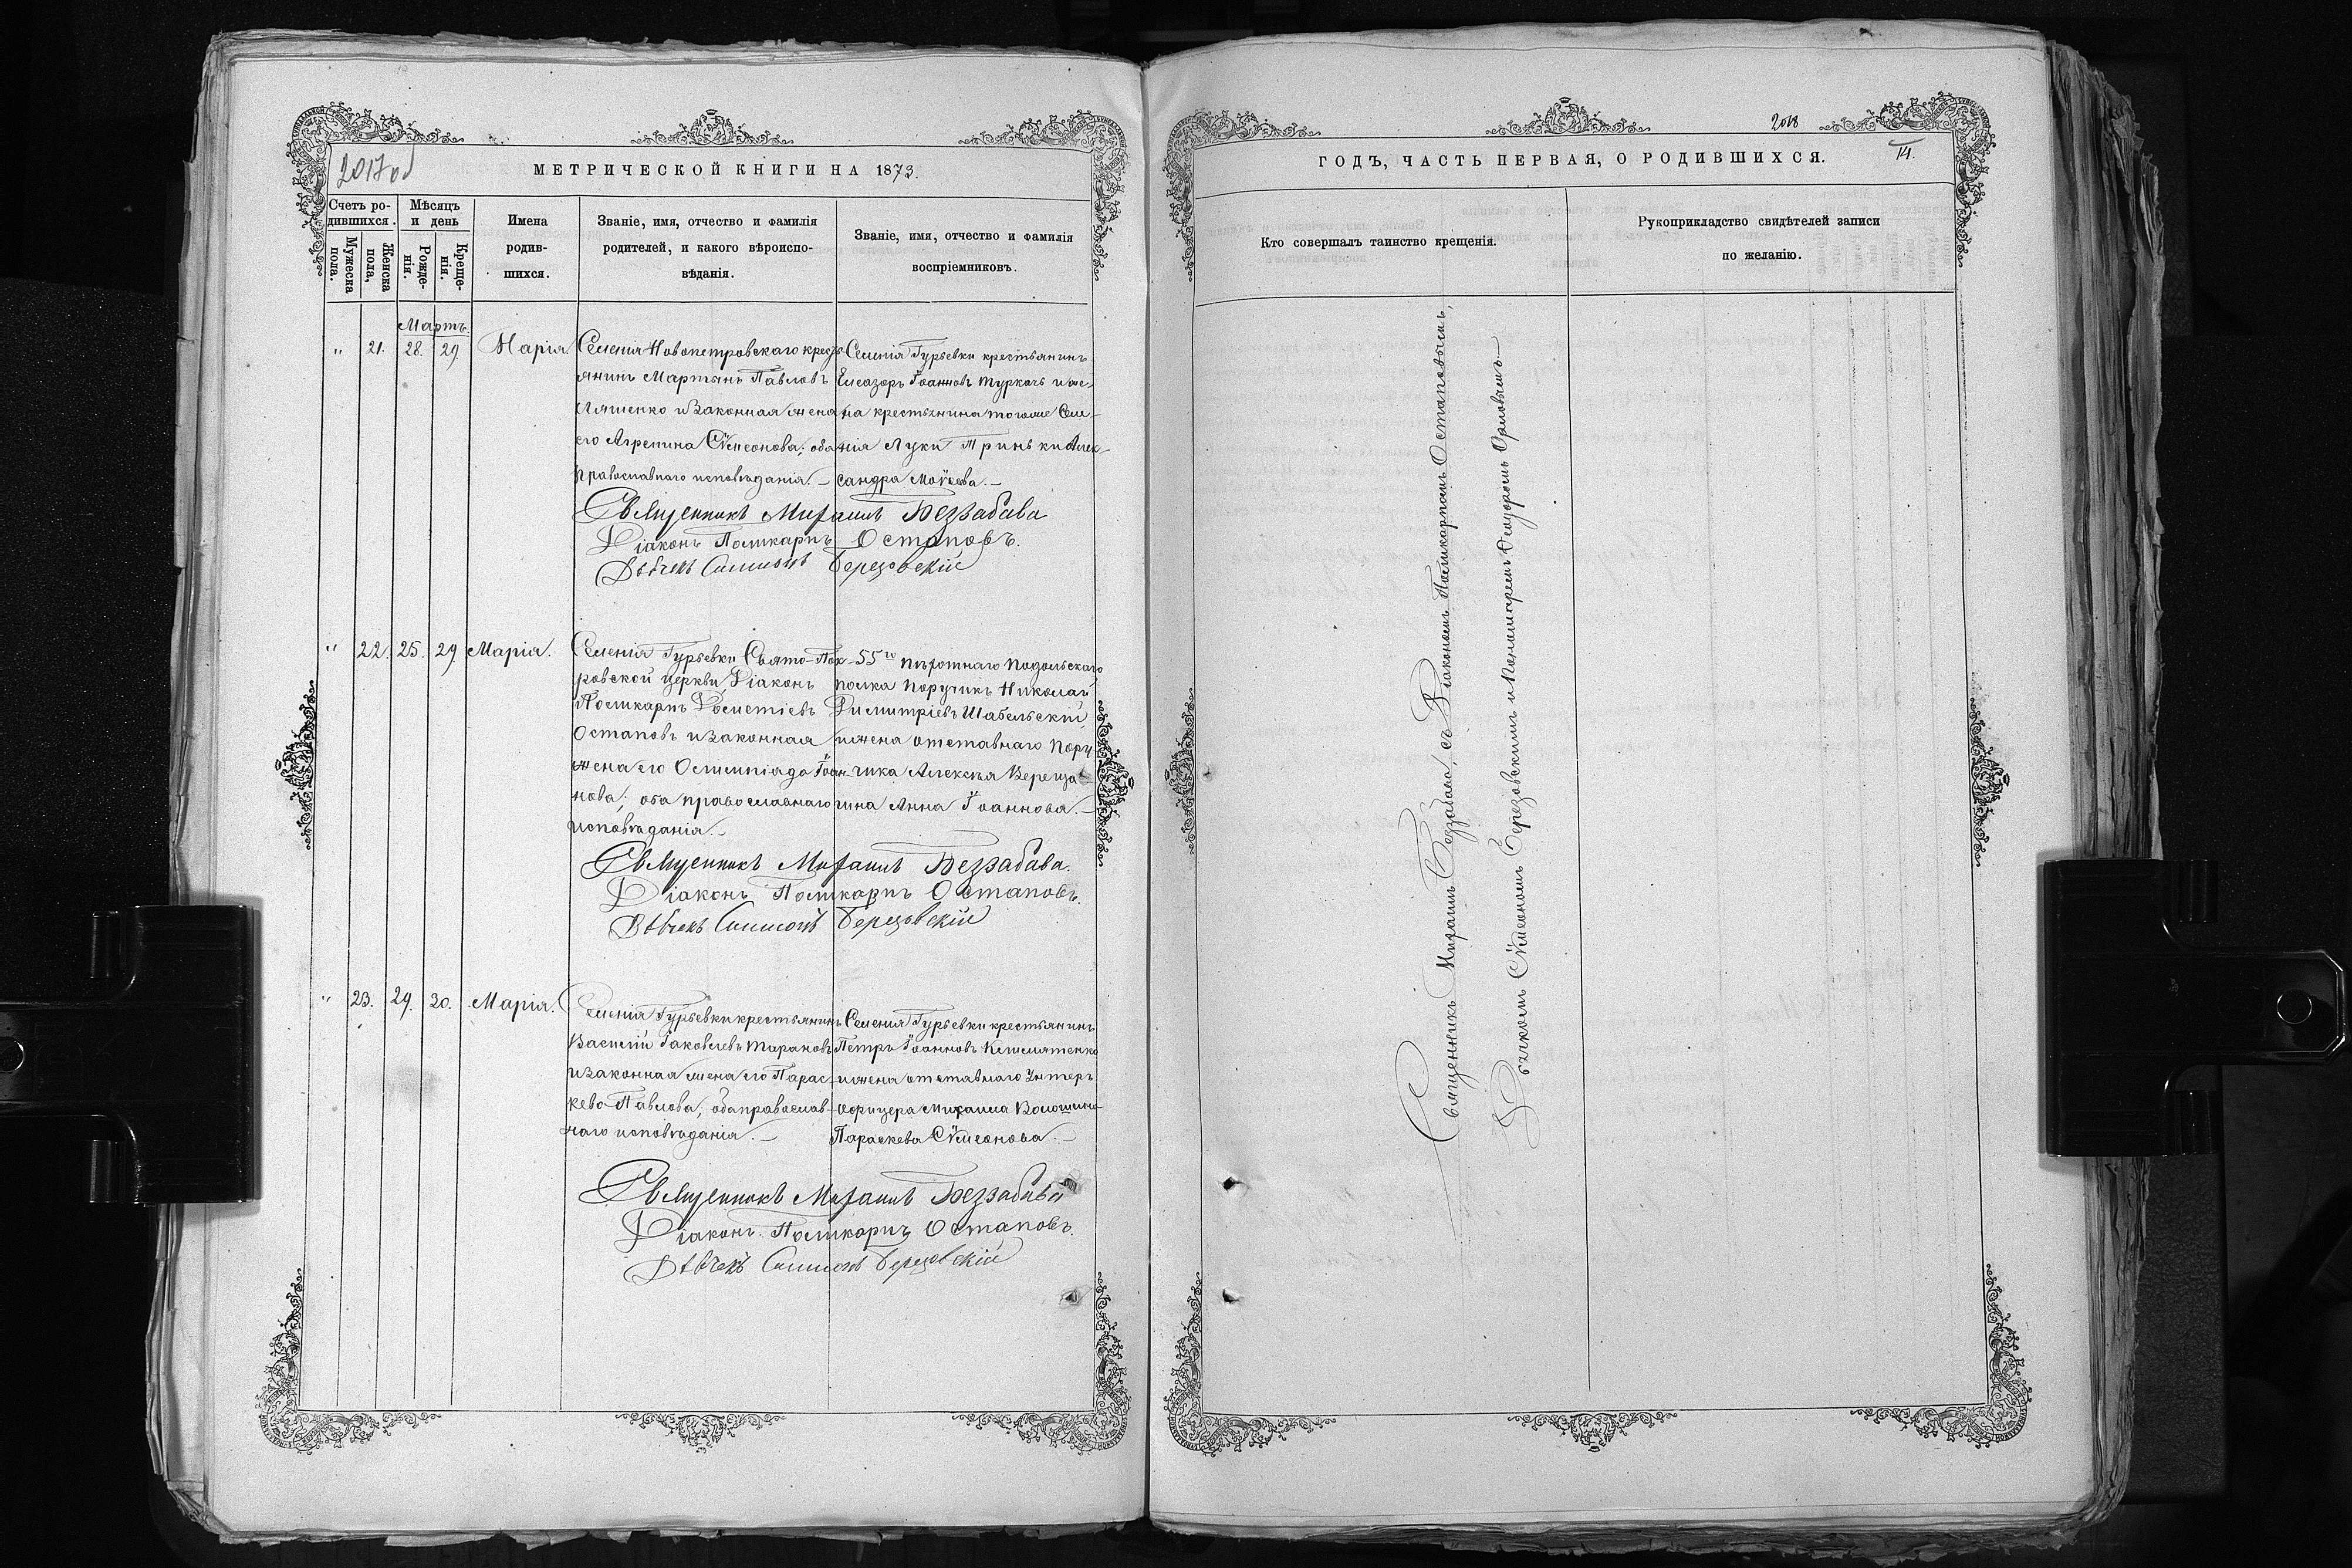 2017 об
МЕТРИЧЕСКОЙ КНИГИ НА 1873.
Счетъ родившихся.
Мужеска пола.
Женска пола.
Мѣсяцъ и день
Рожденія.
Крещенія.
Имена родившихся.
Званіе, имя, отчество и фамилія родителей, и какого вѣроисповѣданія.
Званіе, имя, отчество и фамилія воспріемниковъ.
Мартъ.
" 21. 28. 29. Марія.
Селенія Новопетровскаго крест-
янинъ Мартынъ Павловъ
Ляшенко и законная жена
его Агрепина Сѵмеонова; оба
православнаго исповѣданія.–
Селенія Гурьевки крестьянинъ
Елеазоръ Іоанновъ Туркачъ и же-
на крестьянина тогоже Селе-
нія Луки Гринь Алек-
сандра Моѵсеева.–
Священникъ Михаилъ Беззабава
Діаконъ Поликарпъ Остаповъ.
Дьячекъ Симеонъ Березовскій
" 22. 25. 29. Марія.
Селенія Гурьевки Свято-Пок-
ровской церкви Діаконъ
Поликарпъ Дометіевъ
Остаповъ и законная
жена его Олимпіада Іоан-
нова; оба православнаго
исповѣданія.–
55го пѣхотнаго Подольскаго
полка Поручикъ Николай
Димитріевъ Шабельскій
и жена отставнаго Пору-
чика Алексѣя Вереща-
гина Анна Іоаннова.–
Священникъ Михаилъ Беззабава.
Діаконъ Поликарпъ Остаповъ.
Дьячекъ Симеонъ Березовскій
" 23. 29. 30. Марія.
Селенія Гурьевки крестьянинъ
Василій Іаковлевъ Тарановъ
и законная жена его Парас-
кева Павлова, оба православ-
наго исповѣданія.–
Селенія Гурьевки крестьянинъ
Петръ Іоанновъ
и жена отставнаго Унтеръ
офицера Михаила
Параскева Сѵмеонова.–
Священникъ Михаилъ Беззабава
Діаконъ Поликарпъ Остаповъ.
Дьячекъ Симеонъ Березовскій
2018
14.
ГОДЪ, ЧАСТЬ ПЕРВАЯ, О РОДИВШИХСЯ.
Кто совершалъ таинство крещенія.
Рукоприкладство свидѣтелей записи по желанію.
Священникъ Михаилъ Беззабава, съ Діакономъ Поликарпомъ Остаповымъ,
Дьячкомъ Сѵмеономъ Березовскимъ и Пономаремъ Ѳеодоромъ Орловымъ.–